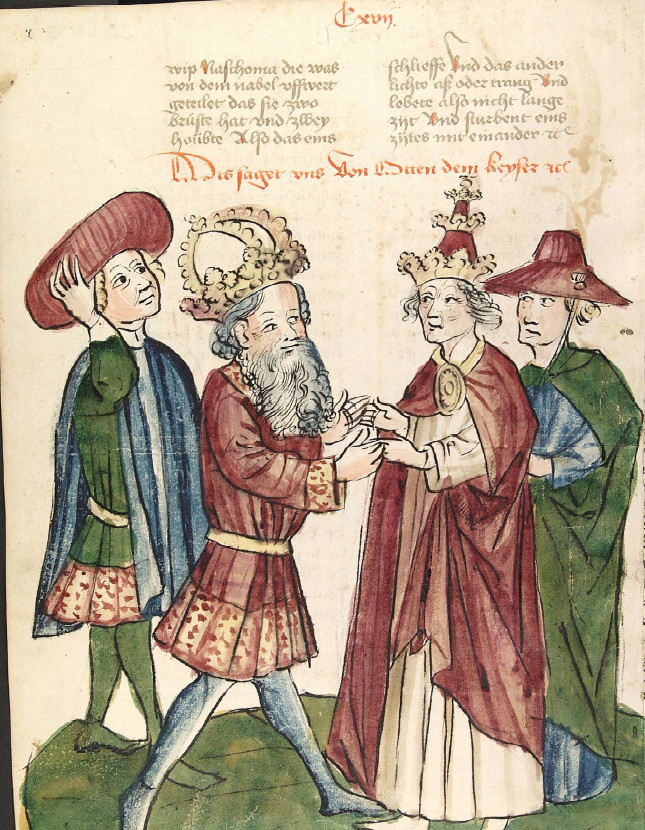 Cxvij
wip Naschoma die was
von dem nabel vffwert
geteilet das sie zwo
brüste hat vnd zwey
hoübte Also das eins
schlieffe Vnd das ander
lichte aß oder trang Vnd
lebete also nicht lange
zijt Vnd sturbent eins
zÿtes mit einander ꝛc
Dis saget vns Von Otten dem keyser ꝛc